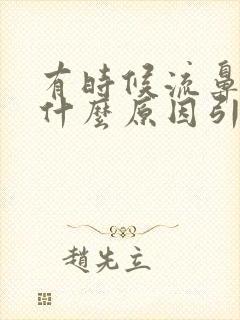 有時候流鼻
什麼原因引
趙先立